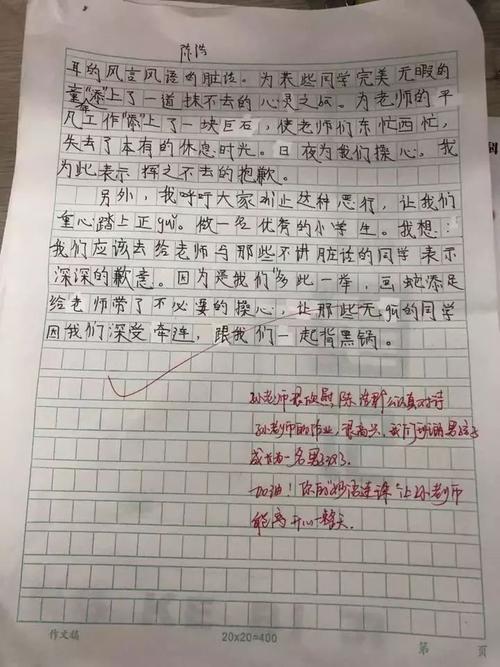 陈浩
耳的风言风语的脏话。为某些同学完美无暇的
童年"添"上了一道抹不去的心灵之灰。为老师的平
凡工作"添"上了一块巨石，使老师们东忙西忙，
失去了本有的休息时光。日夜为我们操心，我
为此表示挥之不去的抱歉。
另外，我呼吁大家制止这种恶行，让我们
重心踏上正guǐ。做一名优秀的小学生。我想：
我们应该去给老师与那些不讲脏话的同学表示
深深的歉意。因为是我们"多此一举，画蛇添足
给老师带了不必要的操心，让那些无gū的同学
因我们深受牵连，跟我们一起背黑锅。
孙老师很欣慰，陈浩认真对待
孙老师的作业，很高兴，我们班的男孩子
成长为一名男子汉了。
加油！你的"妙语连诛"让孙老师
能高开心一整天。
作文稿
20×20=400
第 页